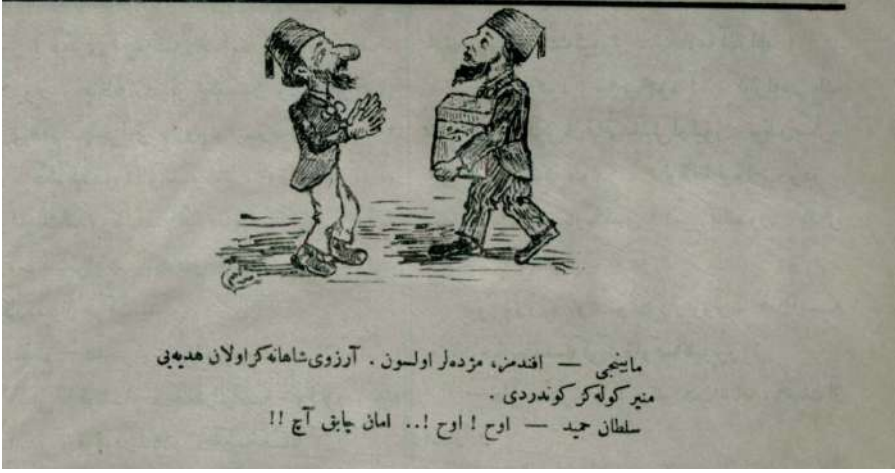 مابینجی — افندمز، مژده‌لر اولسون . آرزوی شاهانه‌كز اولان هدیه‌یی
منیر كوله‌كز كوندردی .
سلطان حمید — اوح ! اوح !.. امان چابق آچ !!